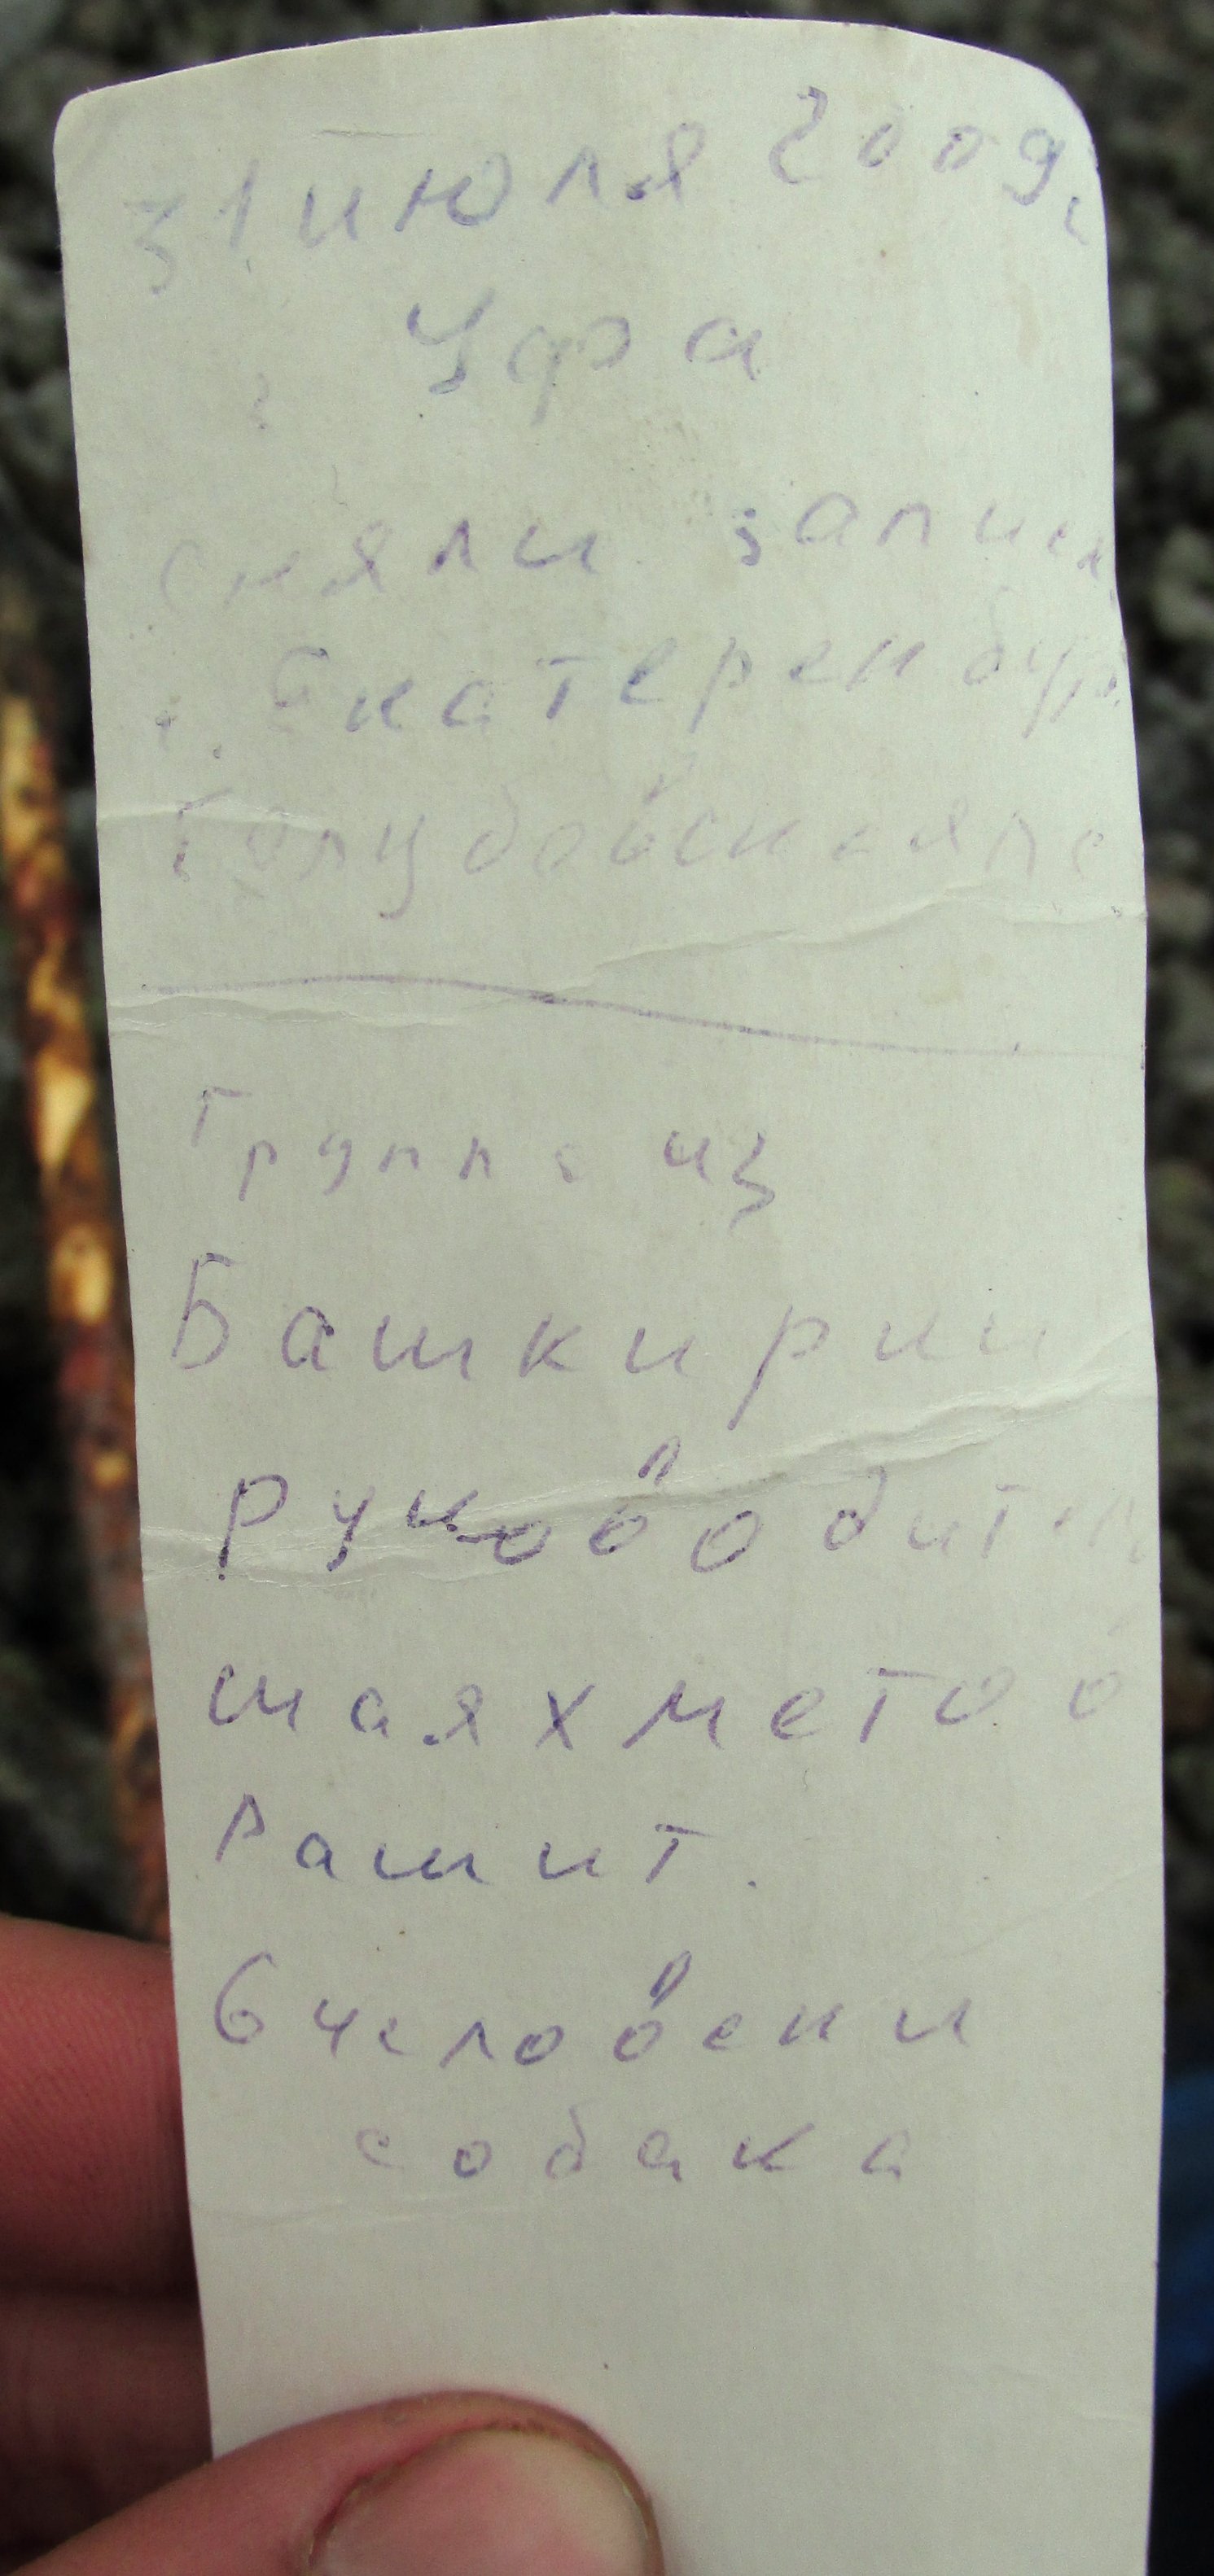 31 июля 2009г
Уфа
сняли запис
г. Екатеренбург
Группа из
Башкирии
руководитель
шаяхметов
Рашит.
6 человеки
собака